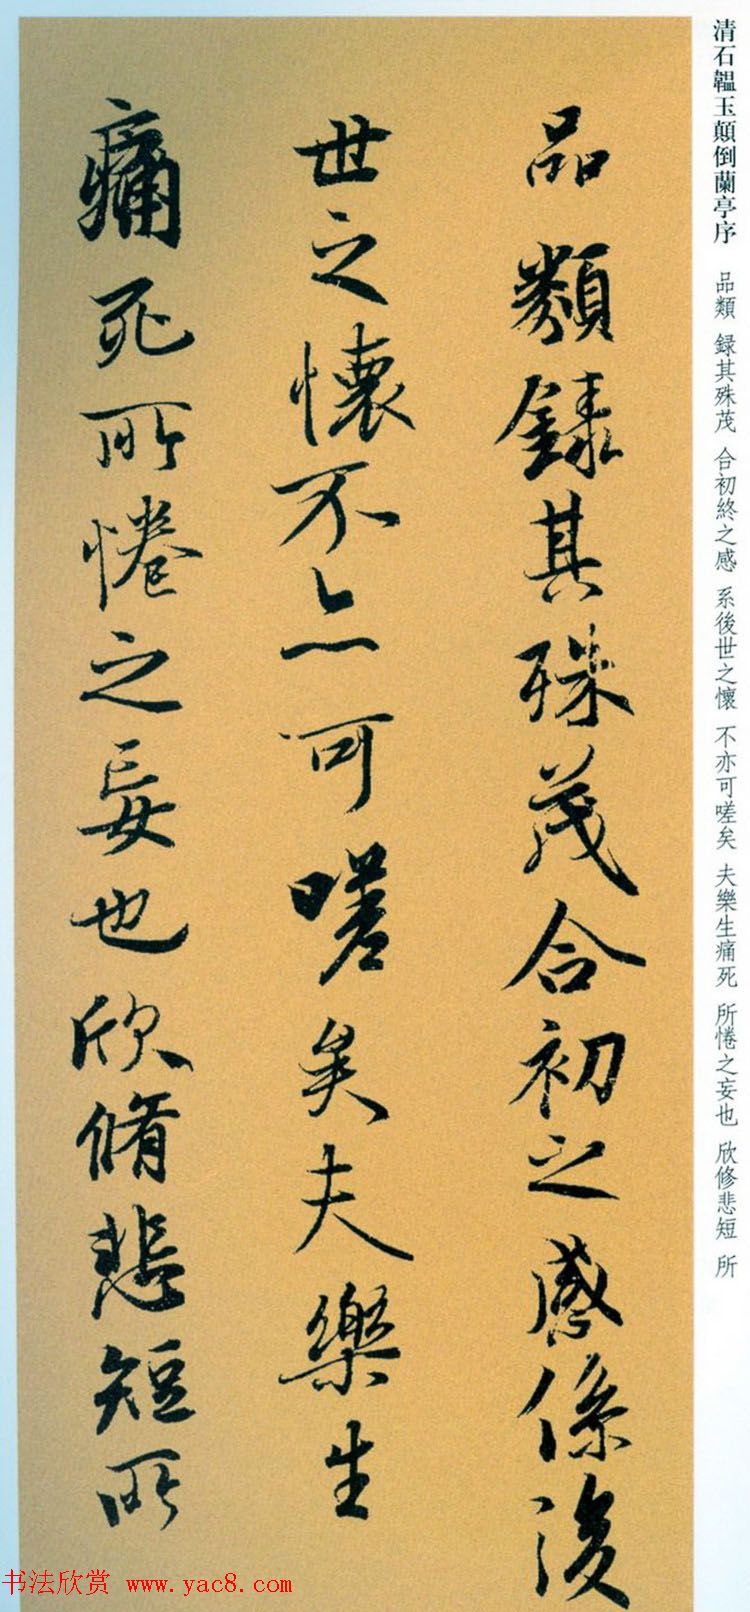 清石韞玉顛倒蘭亭序 品類 録其殊茂 合初終之感 系後世之懷 不亦可嗟矣 夫樂生痛死 所惓之妄也 欣修悲短 所
品類録其殊茂合初之感係後
世之懷不亦可嗟矣夫樂生
痛死所惓之妄也欣脩悲短所
书法欣赏 www.yac8.com